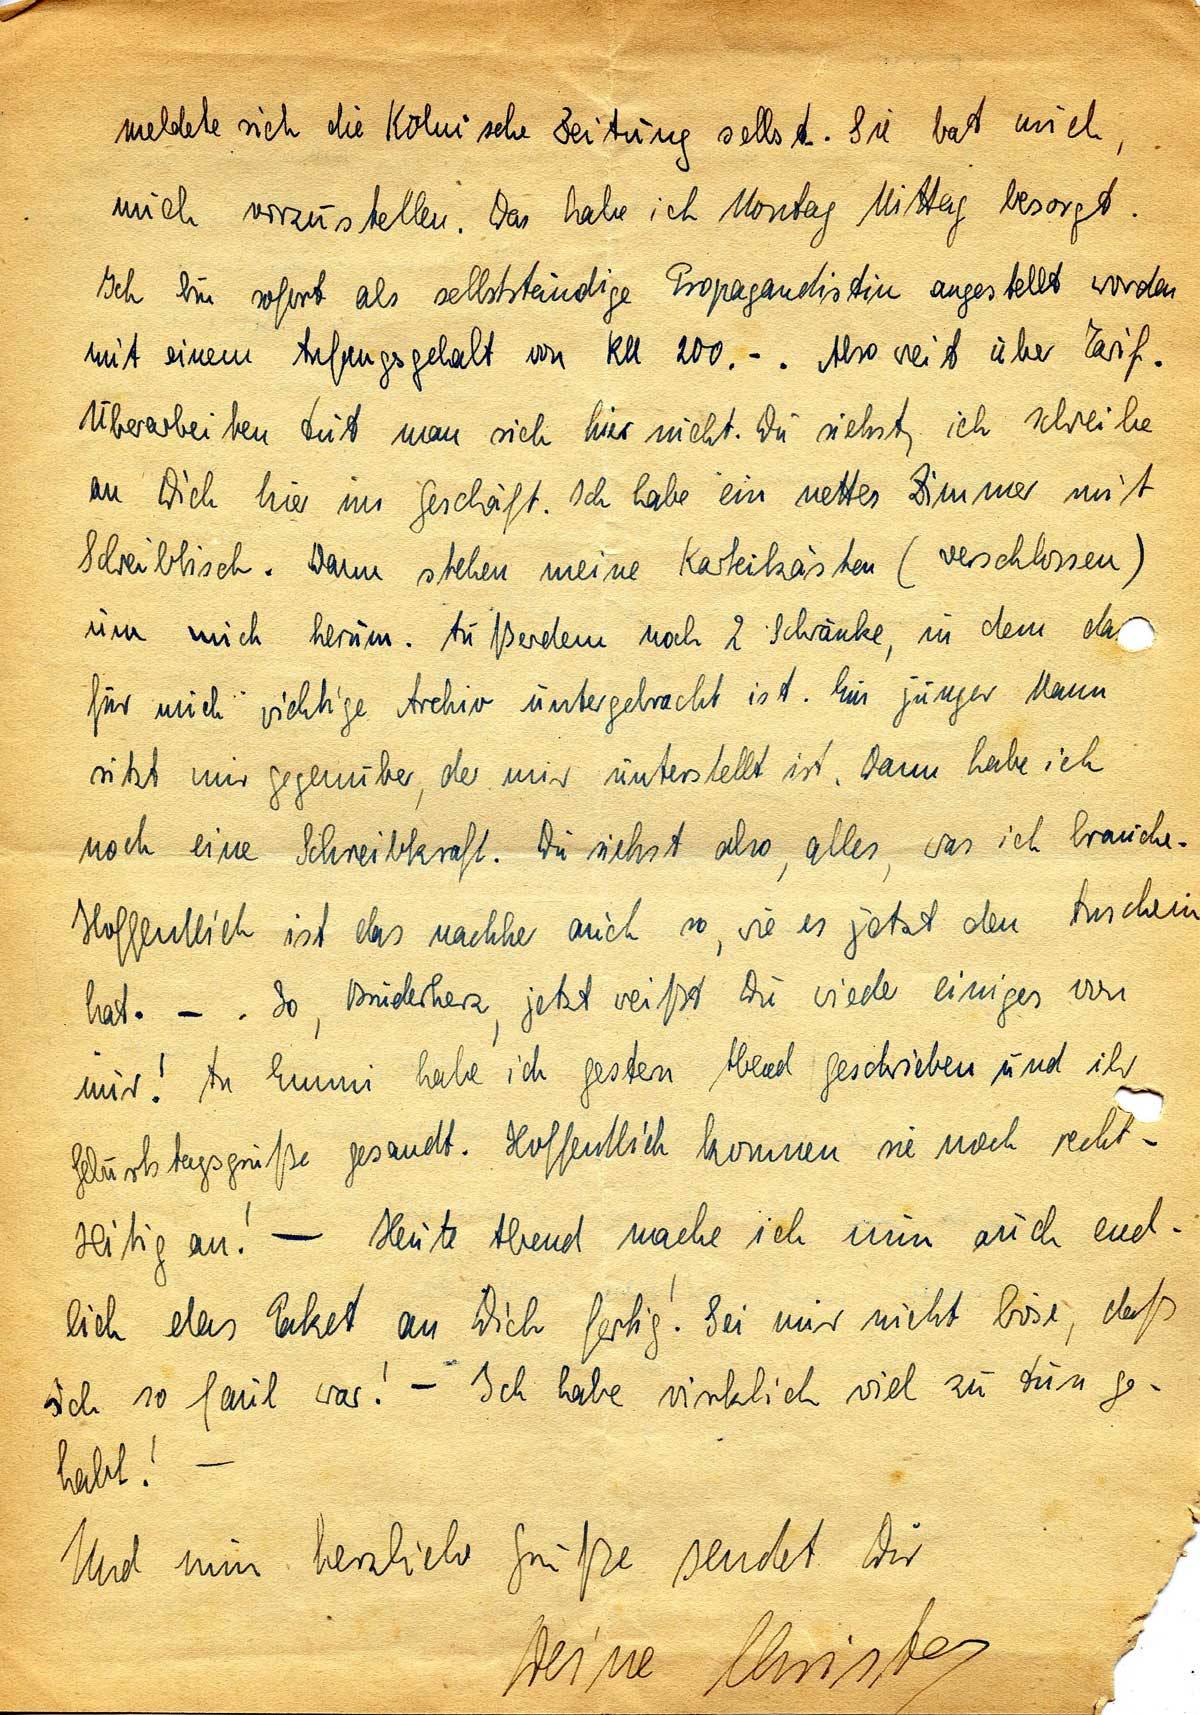 meldete sich die Kölnische Zeitung selbst. Sie bat mich,
mich vorzustellen. Das habe ich Montag Mittag besorgt.
Ich bin sofort als selbstständige Propagandistin angestellt worden
mit einem Anfangsgehalt von RM 200.-. Also weit über Tarif.
Überarbeiten tut man sich hier nicht. Du siehst, ich schreibe
an Dich hier im Geschäft. Ich habe ein nettes Zimmer mit
Schreibtisch. Dann stehen meine Karteikästen (verschlossen)
um mich herum. Außerdem noch 2 Schränke, in dem das
für mich wichtige Archiv untergebracht ist. Ein junger Mann
sitzt mir gegenüber, der mir unterstellt ist. Dann habe ich
noch eine Schreibkraft. Du siehst also, alles, was ich brauche.
Hoffentlich ist das nachher auch so, wie es jetzt den Anschein
hat. - . So, Bruderherz, jetzt weißt Du wieder einiges von
mir! An Emmi habe ich gestern Abend geschrieben und ihr
Geburtstagsgrüße gesandt. Hoffentlich kommen sie noch recht-
zeitig an! - Heute Abend mache ich nun auch end-
lich das Paket an Dich fertig! Sei mir nicht böse, daß
ich so faul war! - Ich habe wirklich viel zu tun ge-
habt! -
Und nun herzliche Grüße sendet Dir
Deine Christa